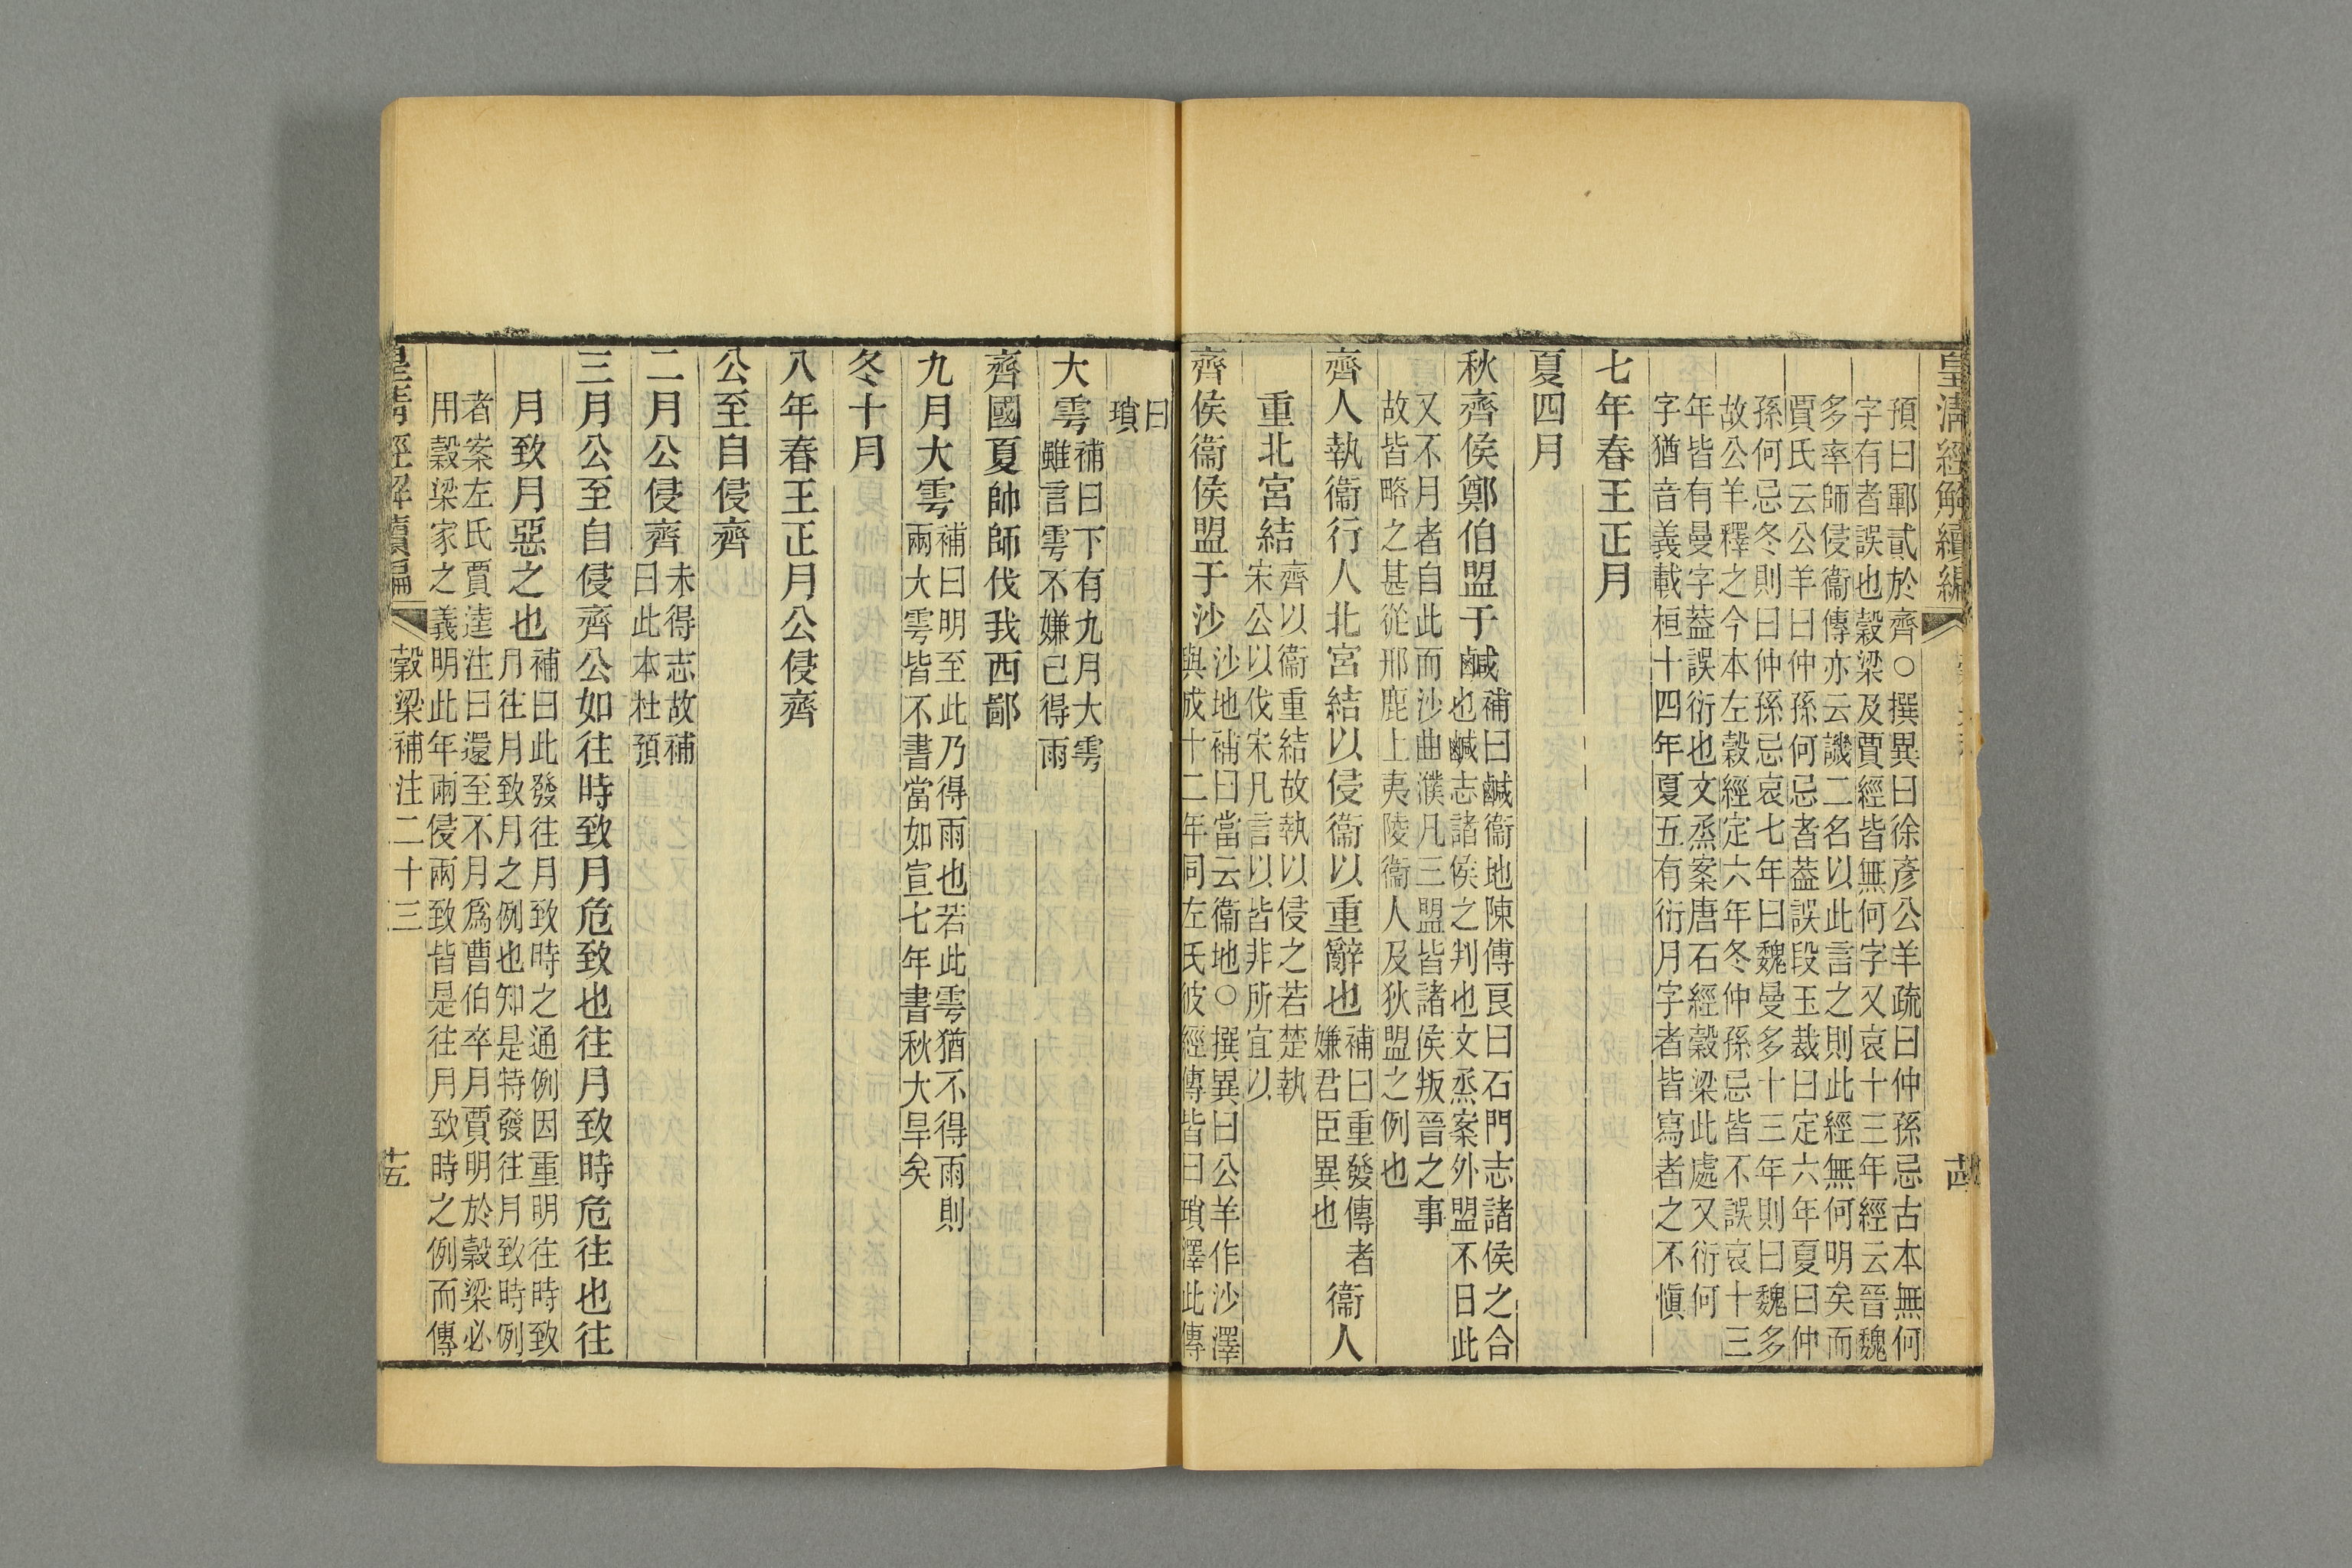 皇清經解續編
十四
預曰鄆貳於齊○撰異曰徐彥公羊疏曰仲孫忌古本無何
字有者誤也穀梁及賈經皆無何字又哀十三年經云晉魏
多率師侵衞傳亦云譏二名以此言之則此經無何明矣而
賈氏云公羊曰仲孫何忌者葢誤段玉裁曰定六年夏曰仲
孫何忌冬則曰仲孫忌哀七年曰魏曼多十三年則曰魏多
故公羊釋之今本左穀經定六年冬仲孫忌皆不誤哀十三
年皆有曼字葢誤衍也文烝案唐石經穀梁此處又衍何
字猶音義載桓十四年夏五有衍月字者皆寫者之不愼
七年春王正月
夏四月
秋齊侯鄭伯盟于鹹補曰鹹衞地陳傅良曰石門志諸侯之合
也鹹志諸侯之判也文烝案外盟不日此
又不月者自此而沙曲濮凡三盟皆諸侯叛晉之事
故皆略之甚從邢鹿上夷陵衞人及狄盟之例也
齊人執衞行人北宮結以侵衞以重辭也補曰重發傳者
嫌君臣異也衞人
重北宮結齊以衞重結故執以侵之若楚執
宋公以伐宋凡言以皆非所宜以
齊侯衞侯盟于沙沙地補曰當云衞地○撰異曰公羊作沙澤
與成十二年同左氏彼經傳皆曰瑣澤此傳
曰
瑣
大雩補曰下有九月大雩
雖言雩不嫌已得雨
齊國夏帥師伐我西鄙
九月大雩補曰明至此乃得雨也若此雩猶不得雨則
兩大雩皆不書當如宣七年書秋大旱矣
冬十月
八年春王正月公侵齊
公至自侵齊
二月公侵齊未得志故補
曰此本杜預
三月公至自侵齊公如往時致月危致也往月致時危往也往
月致月惡之也補曰此發往月致時之通例因重明往時致
月往月致月之例也知是特發往月致時例
者案左氏賈逵注曰還至不月爲曹伯卒月賈明於穀梁必
用穀梁家之義明此年兩侵兩致皆是往月致時之例而傳
皇淸經解續編
穀梁補注二十三
十五